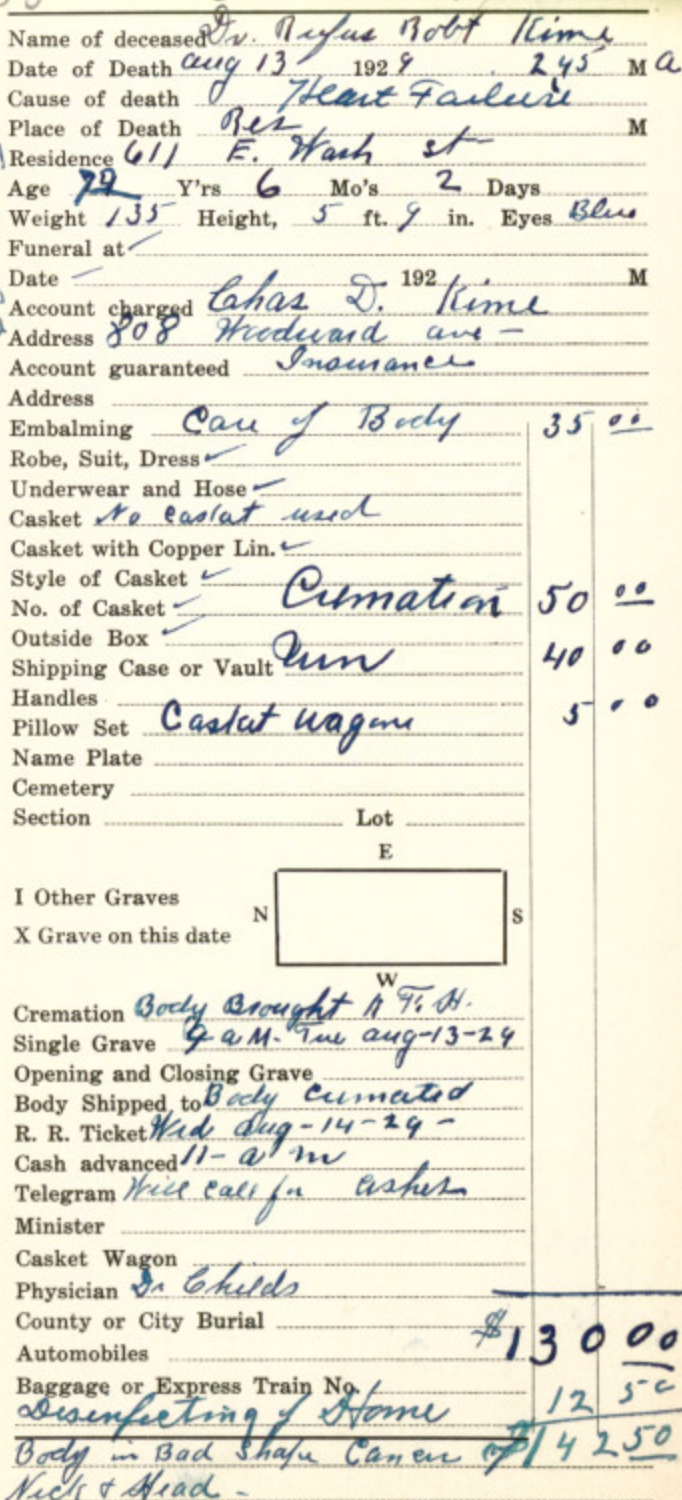 Name of deceased Dr. Rufus Robt Kime
Date of Death Aug 13 1929 . 245 M a
Cause of death Heart Failure
Place of Death Res M
Residence 611 E. Wash st
Age 72 Y'rs 6 Mo's 2 Days
Weight 135 Height, 5 ft. 9 in. Eyes Blue
Funeral at
Date 192 M
Account charged Chas D. Kime
Address 808 Woodward ave -
Account guaranteed Insurance
Address
Embalming Care of Body 35 00
Robe, Suit, Dress
Underwear and Hose
Casket No Casket used
Casket with Copper Lin.
Style of Casket
No. of Casket Cremation 50 00
Outside Box
Shipping Case or Vault Urn 40 00
Handles
Pillow Set Casket wagon 5 00
Name Plate
Cemetery
Section Lot
E
I Other Graves
N S
X Grave on this date
W
Cremation Body Brought F. H.
Single Grave 9 a M. Tue aug-13-29
Opening and Closing Grave
Body Shipped to Body Cremated
R. R. Ticket Wed aug-14-29-
Cash advanced 11- a m
Telegram Will call for ashes
Minister
Casket Wagon
Physician Dr Childs
County or City Burial
Automobiles $130 00
Baggage or Express Train No.
Disenfecting of Home 12 50
Body in Bad Shape Cancer of $142 50
Neck & Head -